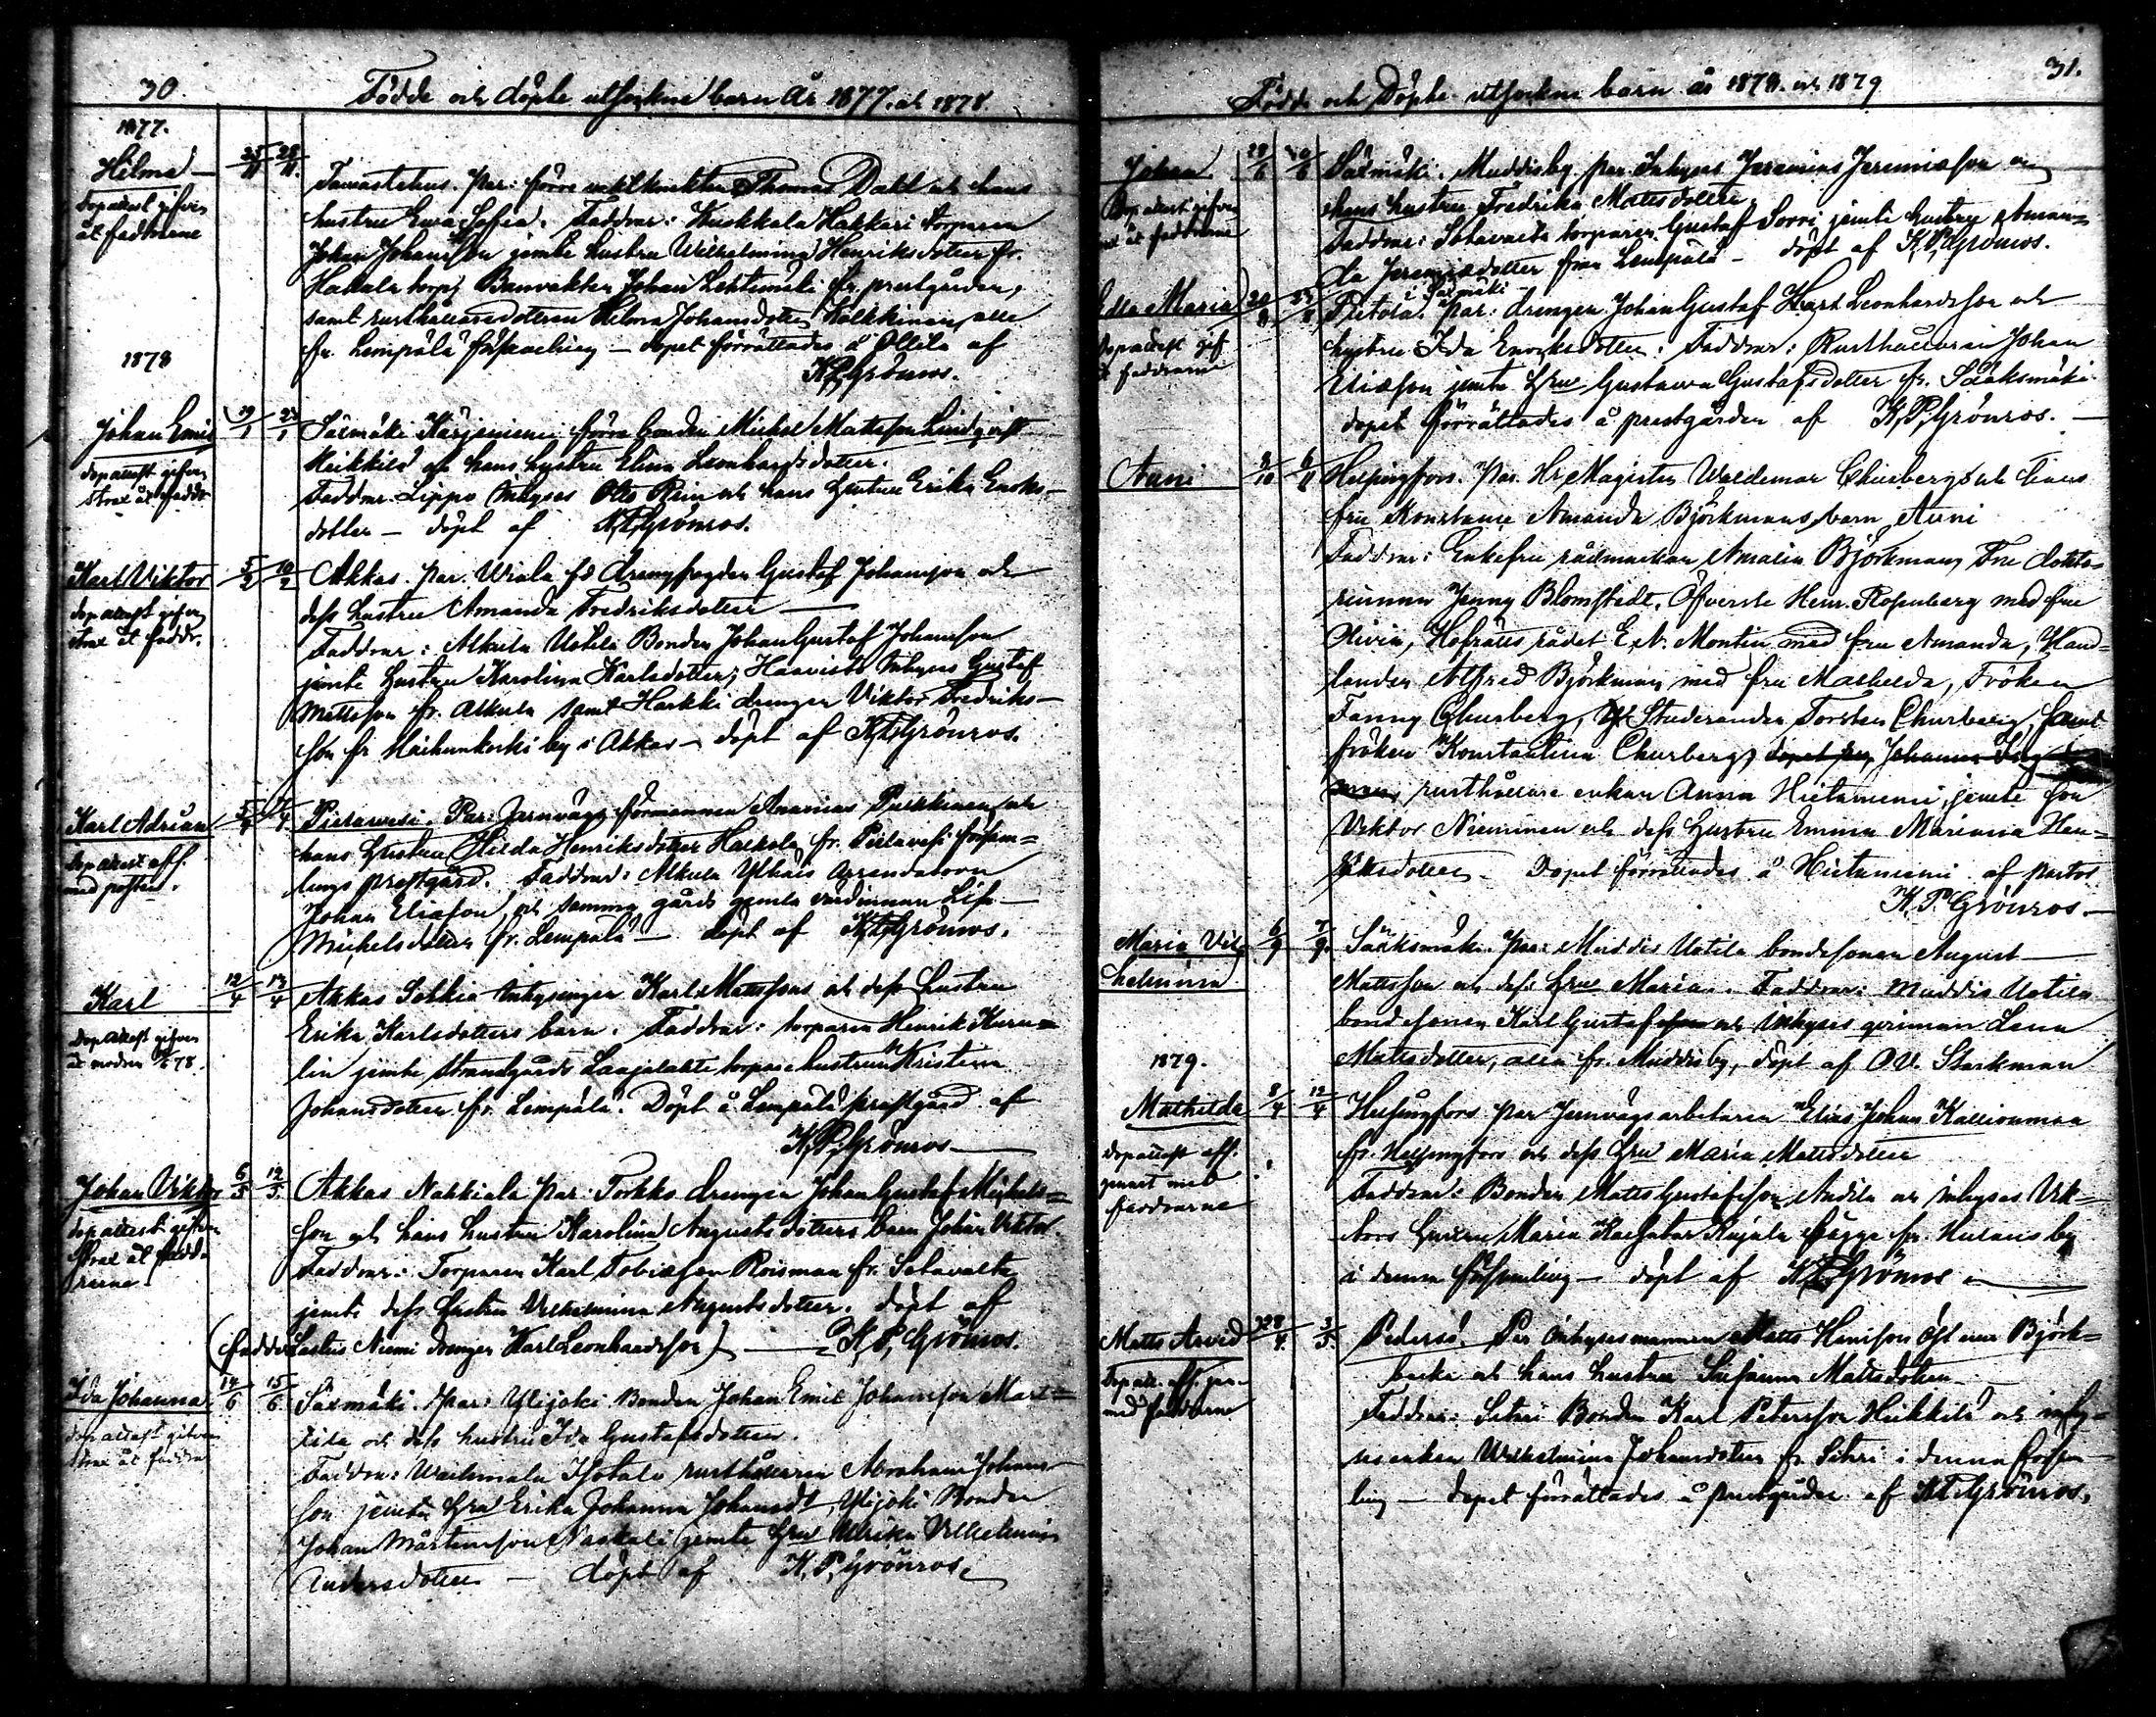 30.
Födde och döpte utsockne barn År 1877. och 1878.
1877.
Hilma
Dopattest gifven
åt faddrarne
25/11 28/11.
Tavastehus. Par: förre Thomas Dahl och hans
hustru Eva Sofia. Faddrar: Kuokkala Hakkari torparen
Johan Johansson jemte hustru Wilhelmina Henriksdotter fr.
Hakala torp, Banvakten Johan Lehtimäki fr. prestgården,
samt rusthållaredottren Hilma Johansdotter Kälkkinen, alla
fr. Lempälä församling — dopet förrättades å Ollila af
K.P. Grönros.
1878
Johan Emil
dopattest gifven
strax åt faddr.
19/1 27/1
Säxmäki Kärjenniemi förra bonden Mickel Mattsson Lindqvist
Heikkilä och hans hustru Elina Leonhardsdotter.
Faddrar Lippo Inhyses Otto Rein och hans hustru Erika Enoks-
dotter — döpt af K.P. Grönros.
Karl Viktor
dopattest gifven
strax åt faddr.
5/2 10/2
Akkas. Par. Wiala fd Drengfogden Gustaf Johansson och
dess hustru Amanda Fredriksdotter —
Faddrar: Alkula Uotila Bonden Johan Gustaf Johansson
jemte hustru Karolina Karlsdotter, Haavisto Inhyses Gustaf
Mattsson fr. Alkula samt Harkki drengen Viktor Fredriks-
son fr by i Akkas — döpt af K.P. Grönros.
Karl Adrian
Dopattest aff.
med posten.
Pielavesi. Par: Jernvägs förmannen Ananias Pulkkinen och
hans hustru Hilda Henriksdotter Halkola, fr. Pielavesi försam=
lings prestgård. Faddrar: Alkula Ylhäis Arrendatorn
Johan Eliasson och samma gårds gamla värdinnan Lisa
Michelsdotter fr. Lempälä — döpt af K.P. Grönros.
Karl
Dopattest gifven
åt modren 78.
12/4 13/4
Akkas Sotkia Inhysingen Karl Mattssons och dess hustru
Erika Karlsdotters barn. Faddrar: torparen Henrik
lin jemte Strandgårds Laajalahti torpare hustrun Kristina
Johansdotter fr. Lempälä. Döpt å Lempälä prestgård af
K.P. Grönros —
Johan Viktor
dopattest gifven
strax åt fadd-
rarne
6/5 12/5
Akkas Nahkiala Par: Torkko drengen Johan Gustaf Michels=
son och hans hustru Karolina Augustsdotters barn Johan Viktor.
Faddrar: Torparen Karl Tobiasson Roisman fr. Sotavalta
jemte dess hustru Vilhelmina Augustsdotter. döpt af
(Fadder Lastus Niemi drengen Karl Leonhardsson) — K.P. Grönros.
Ida Johanna
dopattest gifven
strax åt faddrar
14/6 15/6
Säxmäki. Par: Ylijoki Bonden Johan Emil Johansson Mart=
tila och dess hustru Ida Gustafsdotter.
Faddrar: Waihmala Isotalo rusthållaren Abraham Johans-
son jemte Hru Erika Johanna Johansdr, Ylijoki Bonden
Johan Mårtensson Naskali jemte Hru Ulrika Vilhelmina
Andersdotter — döpt af K.P. Grönros.
31.
Födde och Döpte utsockne barn år 1878. och 1879
Johan
Dopattest gifven
åt faddrarne
28/6
Säxmäki. Muddisby par. Inhyses Jeremias Jeremiasson och
hans hustru Fredrika Mattsdotter.
Faddrar: Sotavalta torparen Gustaf Sorri jemte hustru Aman=
da Jeremiasdotter från Lempälä — döpt af K.P. Grönros.
Edla Maria
Dopattest gif.
åt faddrarne
i Säxmäki
Par: drengen Johan Gustaf Leonhardsson och
hustru Ida Enoksdotter. Faddrar: Rusthållaren Johan
Eliasson jemte Hru Gustava Gustafsdotter fr. Sääksmäki
dopet förrättades å prestgården af K.P. Grönros. —
Auni
8/10 6/11
Helsingfors. Par. Hr Magister Waldemar Churbergs och hans
fru Konstance Amanda Björkmans barn Auni
Faddrar: Enkefru rådmanskan Amalia Björkman, Fru dokto-
rinnan Jenny Blomstedt, Öfverste Henr. Rosenberg med fru
Olivia, Hofrättsrådet E.N. Montin med fru Amanda, Hand=
landen Alfred Björkman med fru Mathilda, Fröken
Fanny Churberg, Studeranden Torsten Churberg, samt
fröken Konstantina Churberg,
rusthållare enkan Anna Hietaniemi jemte son
Viktor Nieminen och dess hustru Emma Mariana Hen=
riksdotter. Dopet förrättades å Hietaniemi af pastor
K.P. Grönros. —
Maria Vil-
helmina
6/9 7/9.
Sääksmäki. Par: Muddis Uotila bondesonen August
Mattsson och dess Hru Maria. Faddrar: Muddis Uotila
bondesonen Karl Gustafsson och Inhyses qvinnan Lena
Mattsdotter, alla fr. Muddisby, döpt af O.V. Starkman
1879.
Mathilda
dopattest aff.
genast med
faddrarne
8/4 12/4
Helsingfors. par Jernvägsarbetaren Elias Johan Kallionmaa
fr. Helsingfors och dess Hru Maria Mattsdotter
Faddrar: Bonden Matts Gustafsson Andila och Inhyses Vik-
tors hustru Maria Kujala bägge fr. by
i denna församling — döpt af K.P. Grönros —
Matts Arvid
Dopatt. aff. gen.
med faddrarne
28/4. 3/5.
Pedersö. Par Inhysesmannen Matts Henrikson Björk=
backa och hans hustru Susanna Mattsdotter
Faddrar: Sitari Bonden Karl Petersson Heikkilä och inhy-
ses enkan Wilhelmina Johansdotter fr. i denna försam-
ling — dopet förrättades å prestgården af K.P. Grönros.